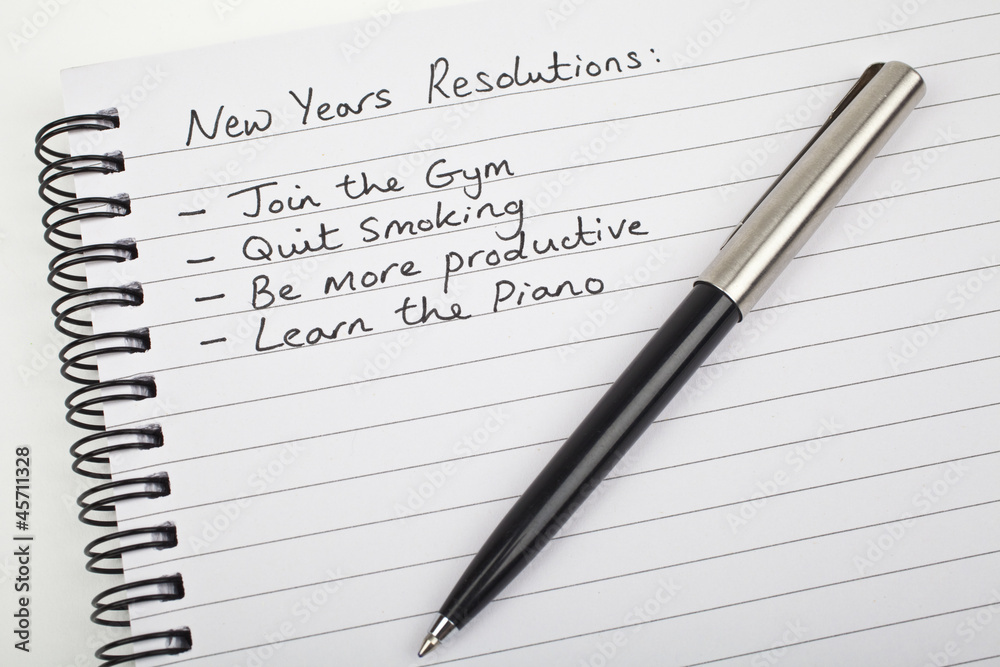 New Years Resolutions:
- Join the Gym
- Quit Smoking
- Be more productive
- Learn the Piano
Adobe Stock | #45711328